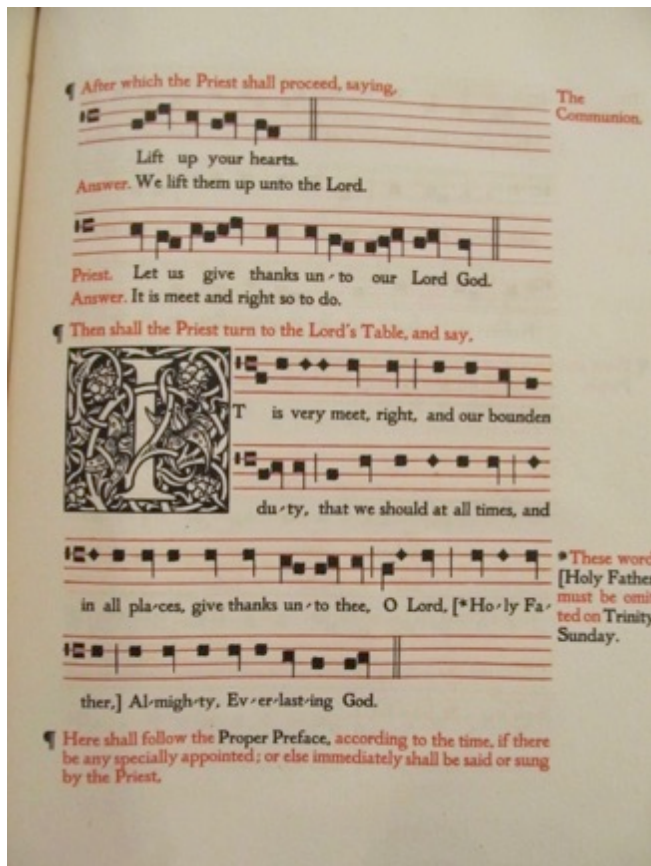 ¶ After which the Priest shall proceed, saying,
The
Communion.
Lift up your hearts.
Answer. We lift them up unto the Lord.
Priest. Let us give thanks un-to our Lord God.
Answer. It is meet and right so to do.
¶ Then shall the Priest turn to the Lord's Table, and say,
IT is very meet, right, and our bounden
du-ty, that we should at all times, and
in all pla-ces, give thanks un-to thee, O Lord, [*Ho-ly Fa-
ther,] Al-migh-ty, Ev-er-last-ing God.
*These word
[Holy Father
must be omit
ted on Trinity
Sunday.
¶ Here shall follow the Proper Preface, according to the time, if there
be any specially appointed; or else immediately shall be said or sung
by the Priest,